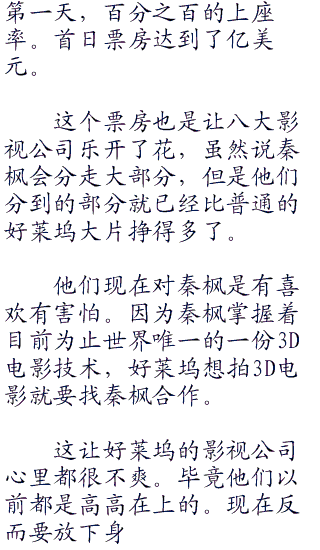 第一天，百分之百的上座
率。首日票房达到了亿美
元。
这个票房也是让八大影
视公司乐开了花，虽然说秦
枫会分走大部分，但是他们
分到的部分就已经比普通的
好莱坞大片挣得多了。
他们现在对秦枫是有喜
欢有害怕。因为秦枫掌握着
目前为止世界唯一的一份3D
电影技术，好莱坞想拍3D电
影就要找秦枫合作。
这让好莱坞的影视公司
心里都很不爽。毕竟他们以
前都是高高在上的。现在反
而要放下身